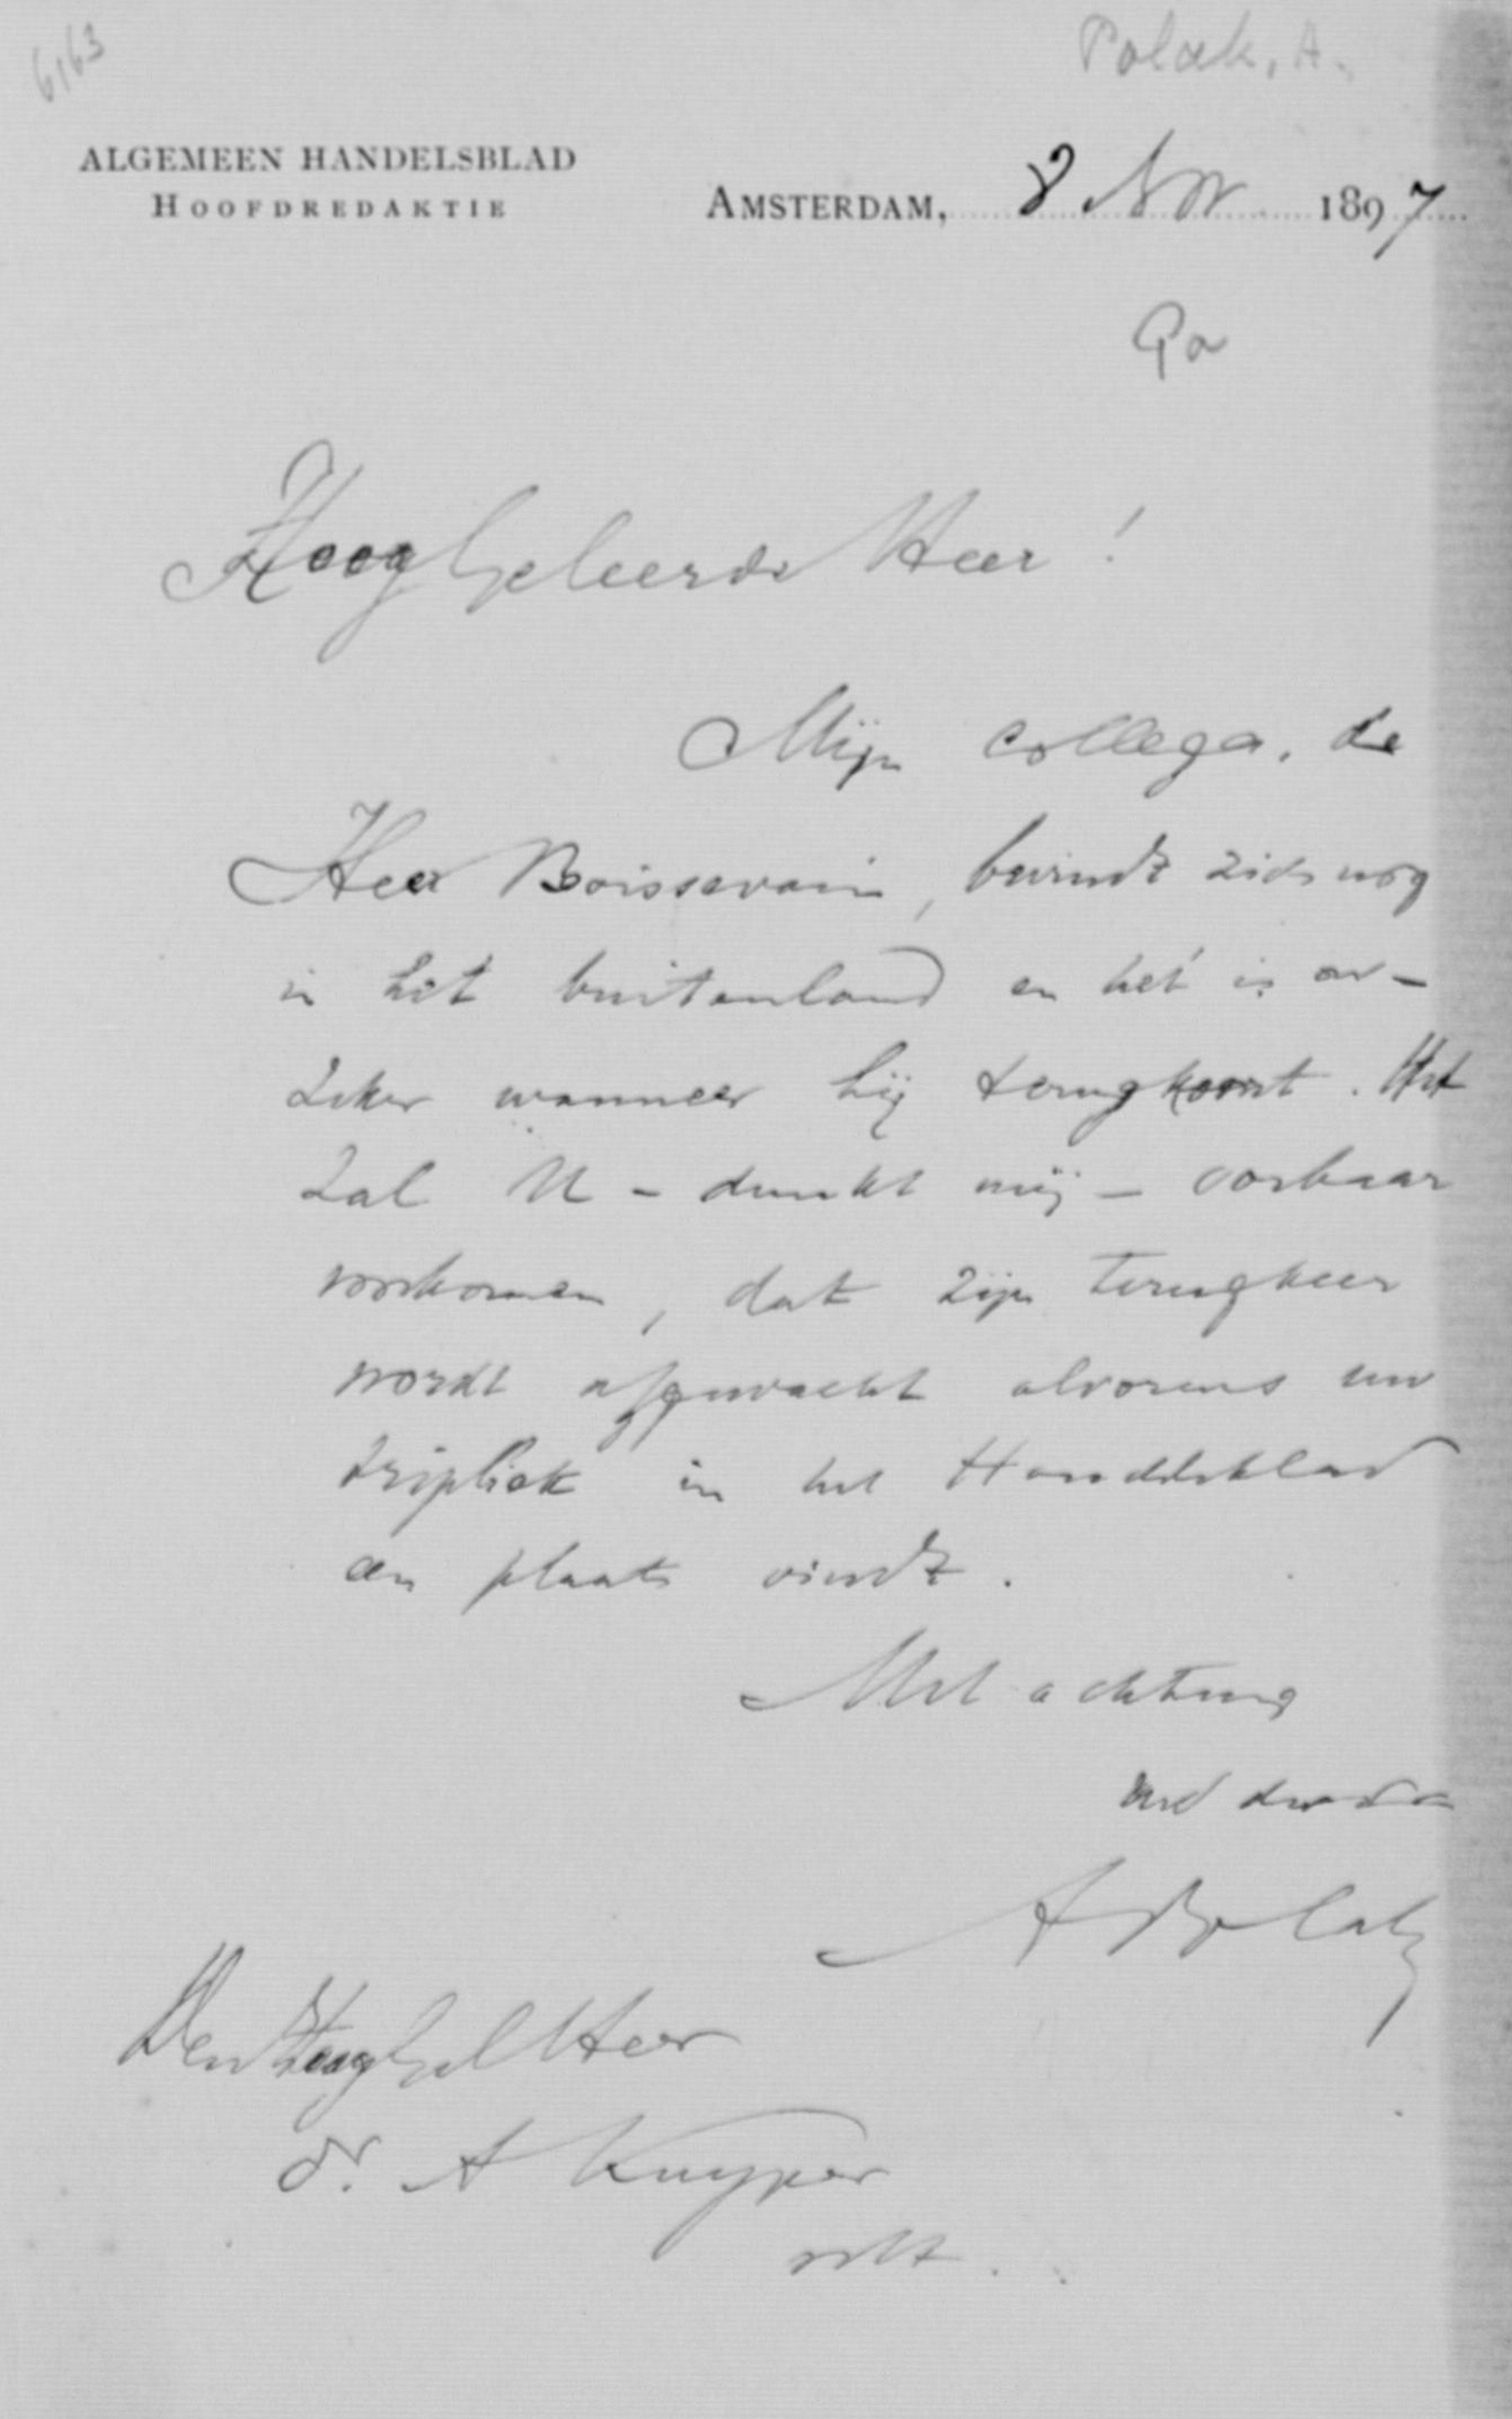 6163
Polak, A.
ALGEMEEN HANDELSBLAD
HOOFDREDAKTIE
AMSTERDAM, 8 Nov 1897
HoogGeleerde Heer!
Mijn collega, de
Heer Boissevain, bevindt zich nog
in het buitenland en het is on-
zeker wanneer hij terugkomt. Het
zal U - dunkt mij - oorbaar
voorkomen, dat zijn terugkeer
wordt afgewacht alvorens uw
tripliek in het Handelsblad
een plaats vindt.
Met achting
A Polak
Den HoogGel Heer
Dr. A Kuyper